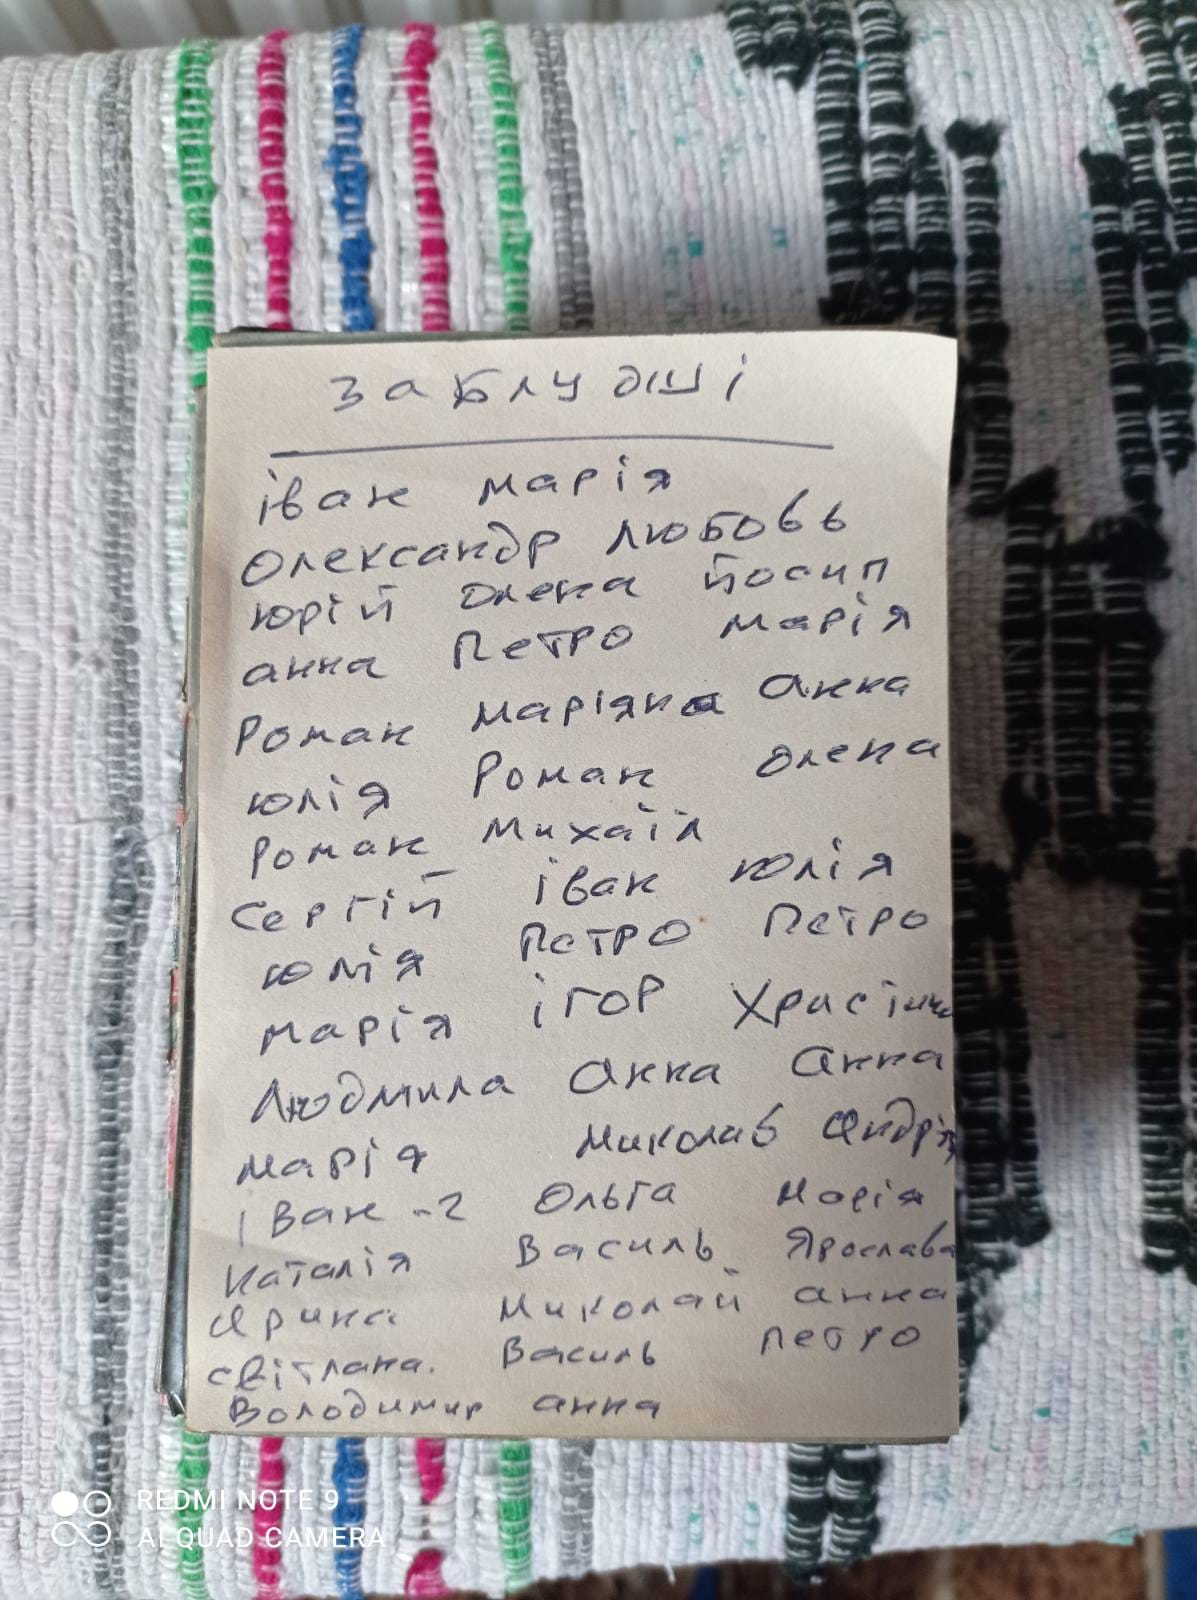 заблудші
іван марія
Олександр Любовь
юрій олена йосип
анна Петро марія
Роман маріяна анна
юлія Роман олена
Роман михаїл
Сергій іван юлія
юлія Петро Петро
марія ігор
Людмила анна анна
марія
іван -2 Ольга марія
наталія Василь Ярослава
Ярина Миколай анна
світлана. Василь петро
Володимир анна
REDMI NOTE 9
AI QUAD CAMERA